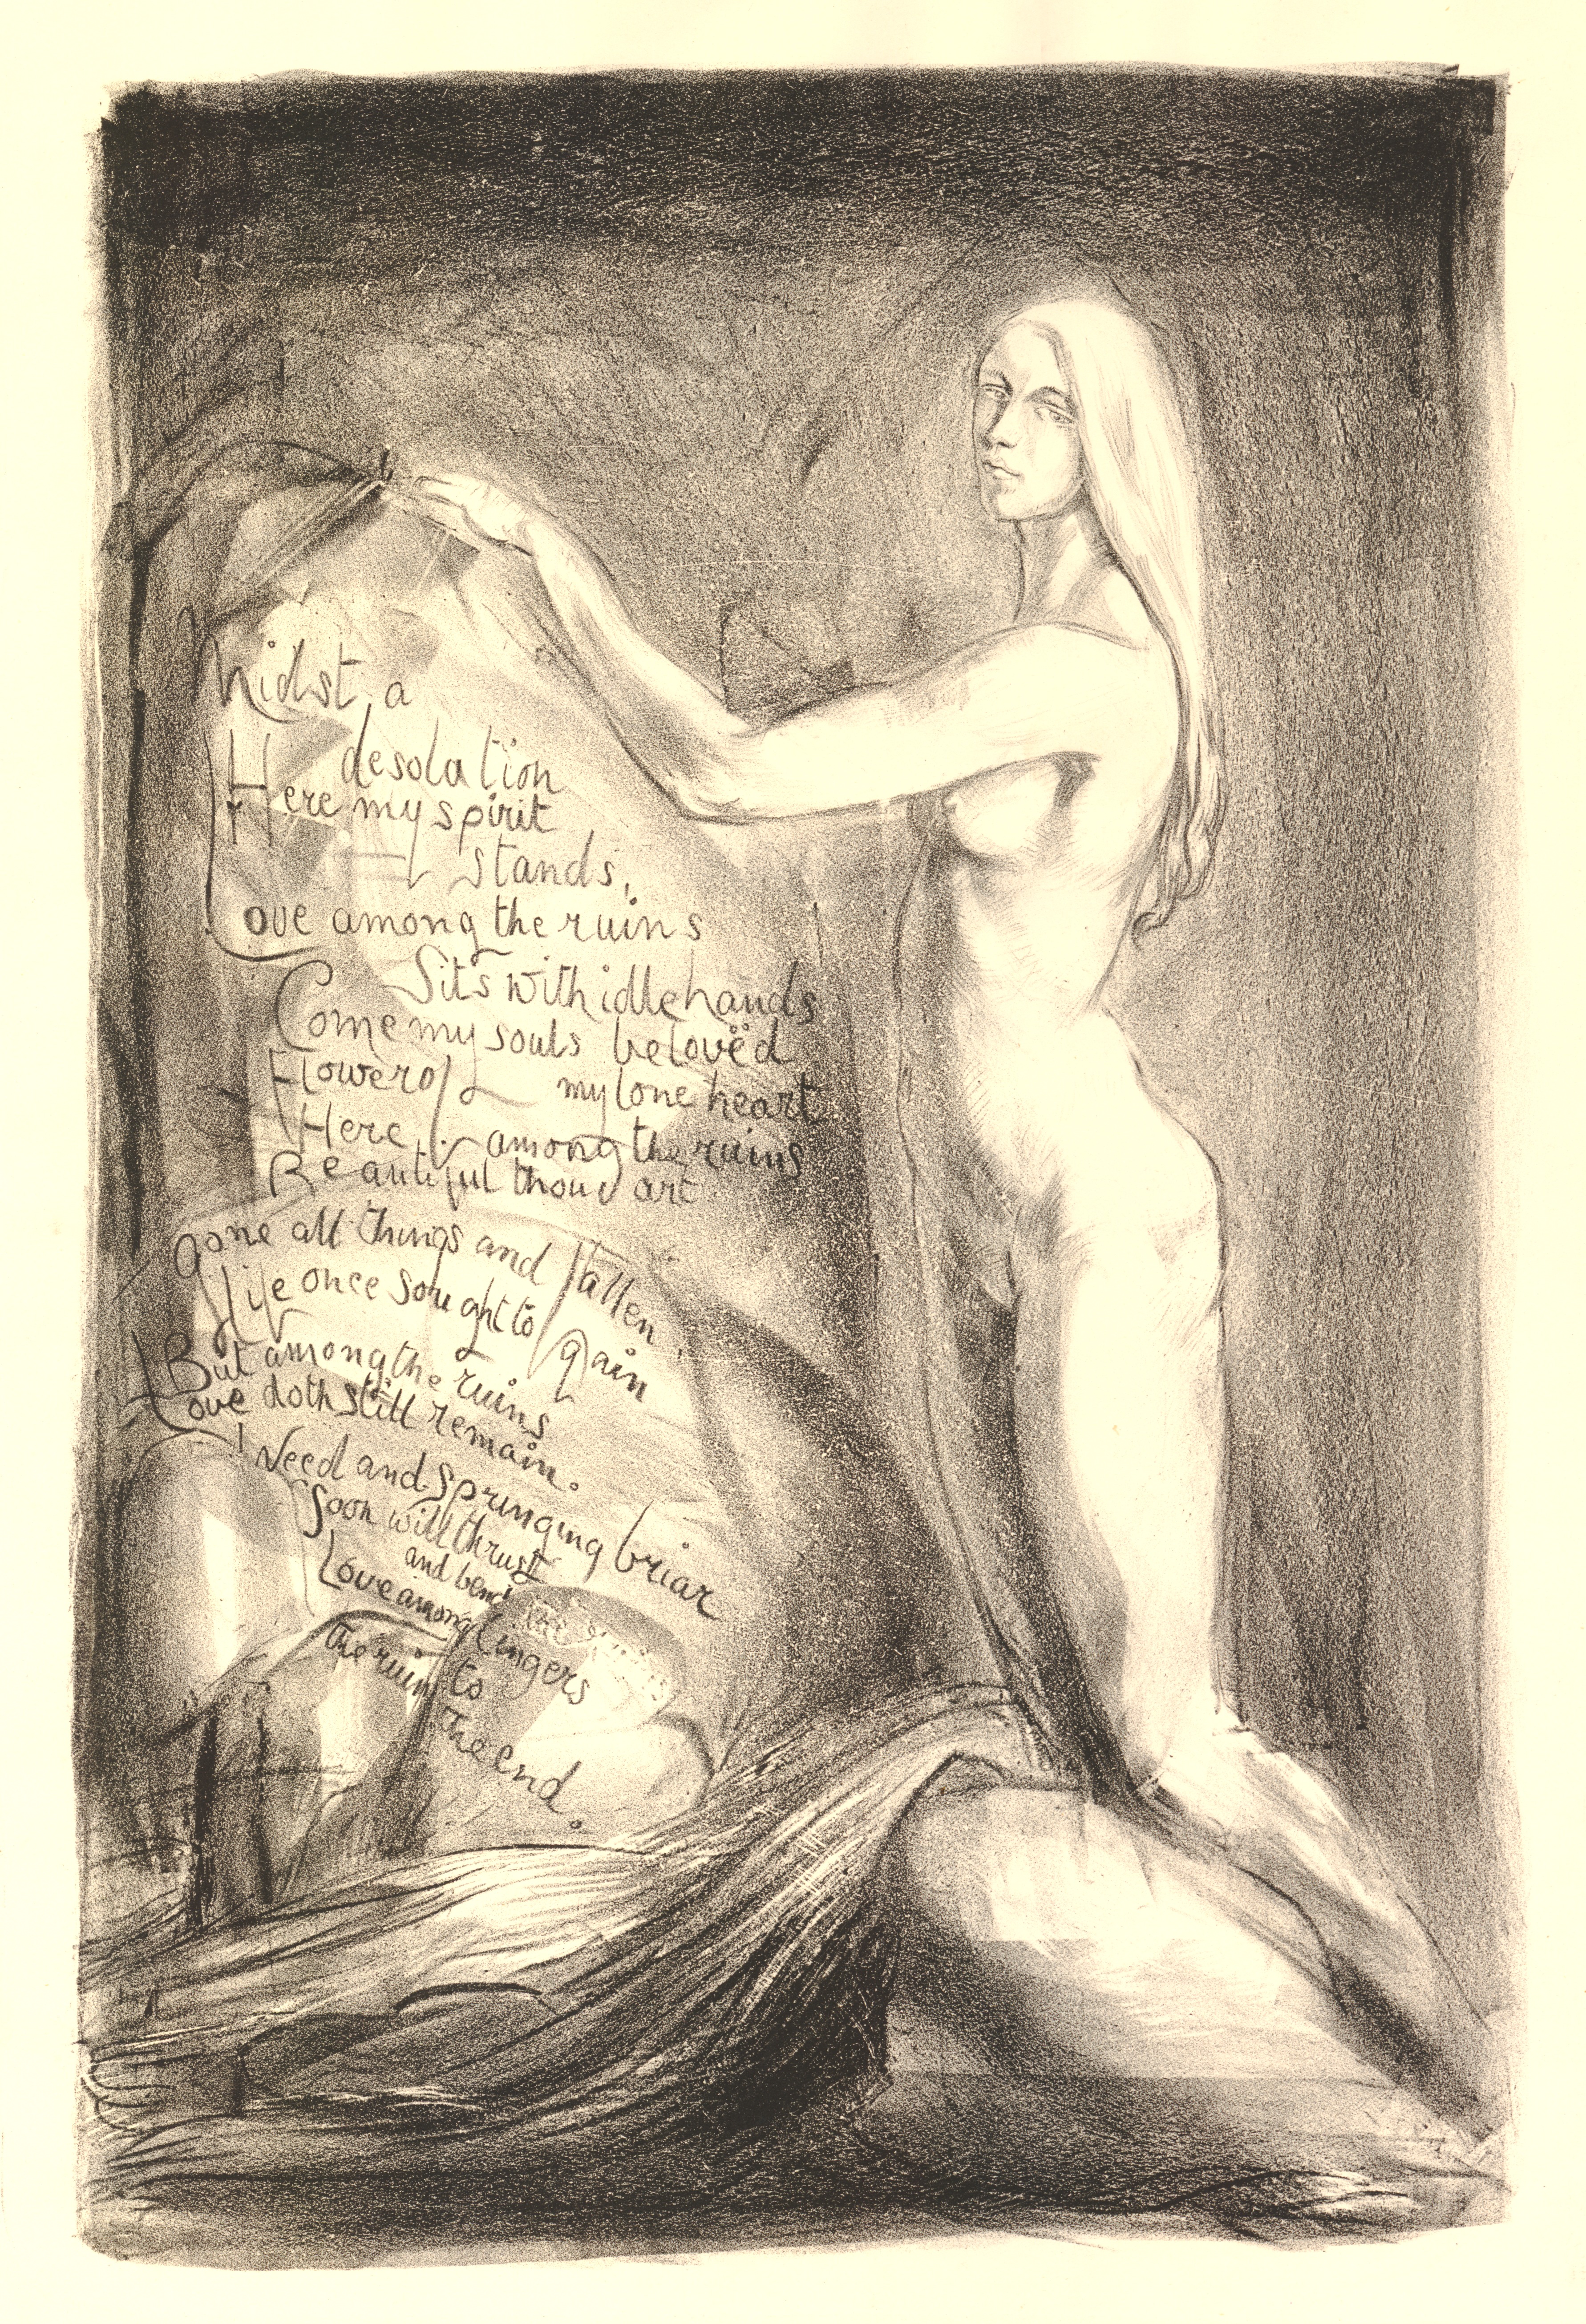 Midst a
desolation
Here my spirit
stands,
Love among the ruins
Sits with idle hands
Come my souls belovëd
Flower of my lone heart
Here among the ruins
Beautiful thou art
Gone all things and fallen
Life once sought to gain
But among the ruins
Love doth still remain.
Weed and springing briar
Soon will thrust
and bend
Love among
the ruins
lingers
to
the end.